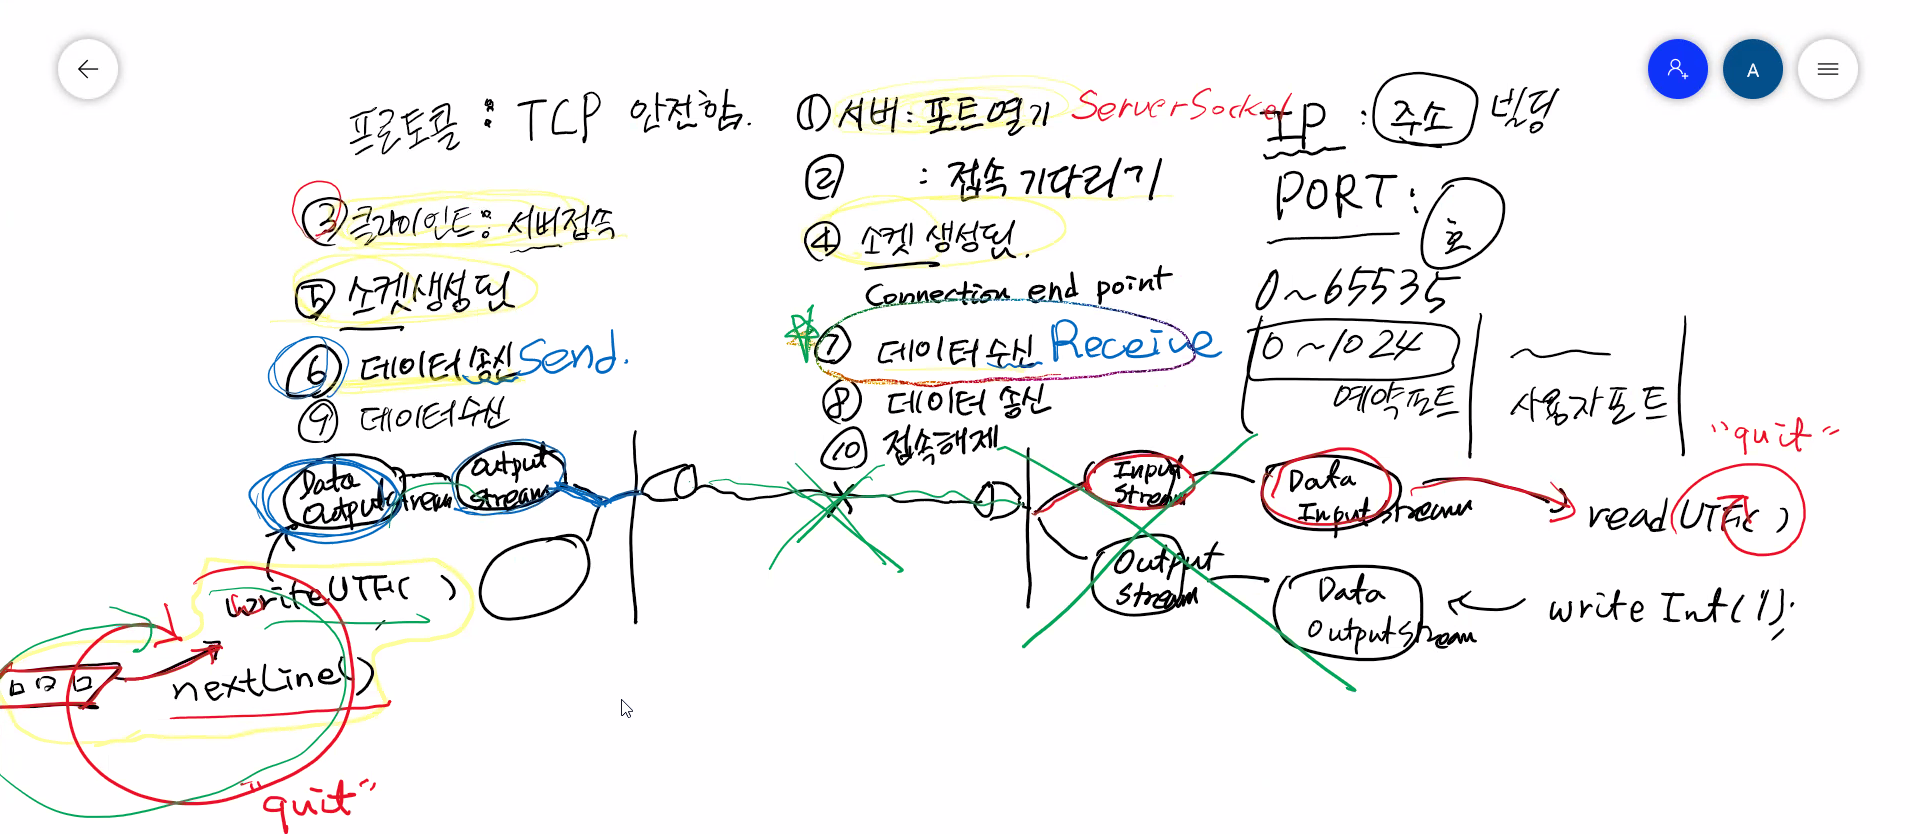 A
프로토콜 : TCP 안전함.
③ 클라이언트 : 서버접속
⑤ 소켓생성됨
⑥ 데이터 송신 Send.
⑨ 데이터수신
① 서버 : 포트열기 ServerSocket
② : 접속 기다리기
④ 소켓 생성됨.
Connection end point
⑦ 데이터 수신 Receive
⑧ 데이터 송신
⑩ 접속해제
IP : 주소 빌딩
PORT : 호
0~65535
0~1024
예약포트
사용자포트
Data
Output Stream
Output
Stream
writeUTF( )
nextLine()
"quit"
Input
Stream
Data
Input Stream
"quit"
readUTF( )
Output
Stream
Data
OutputStream
write Int(1);